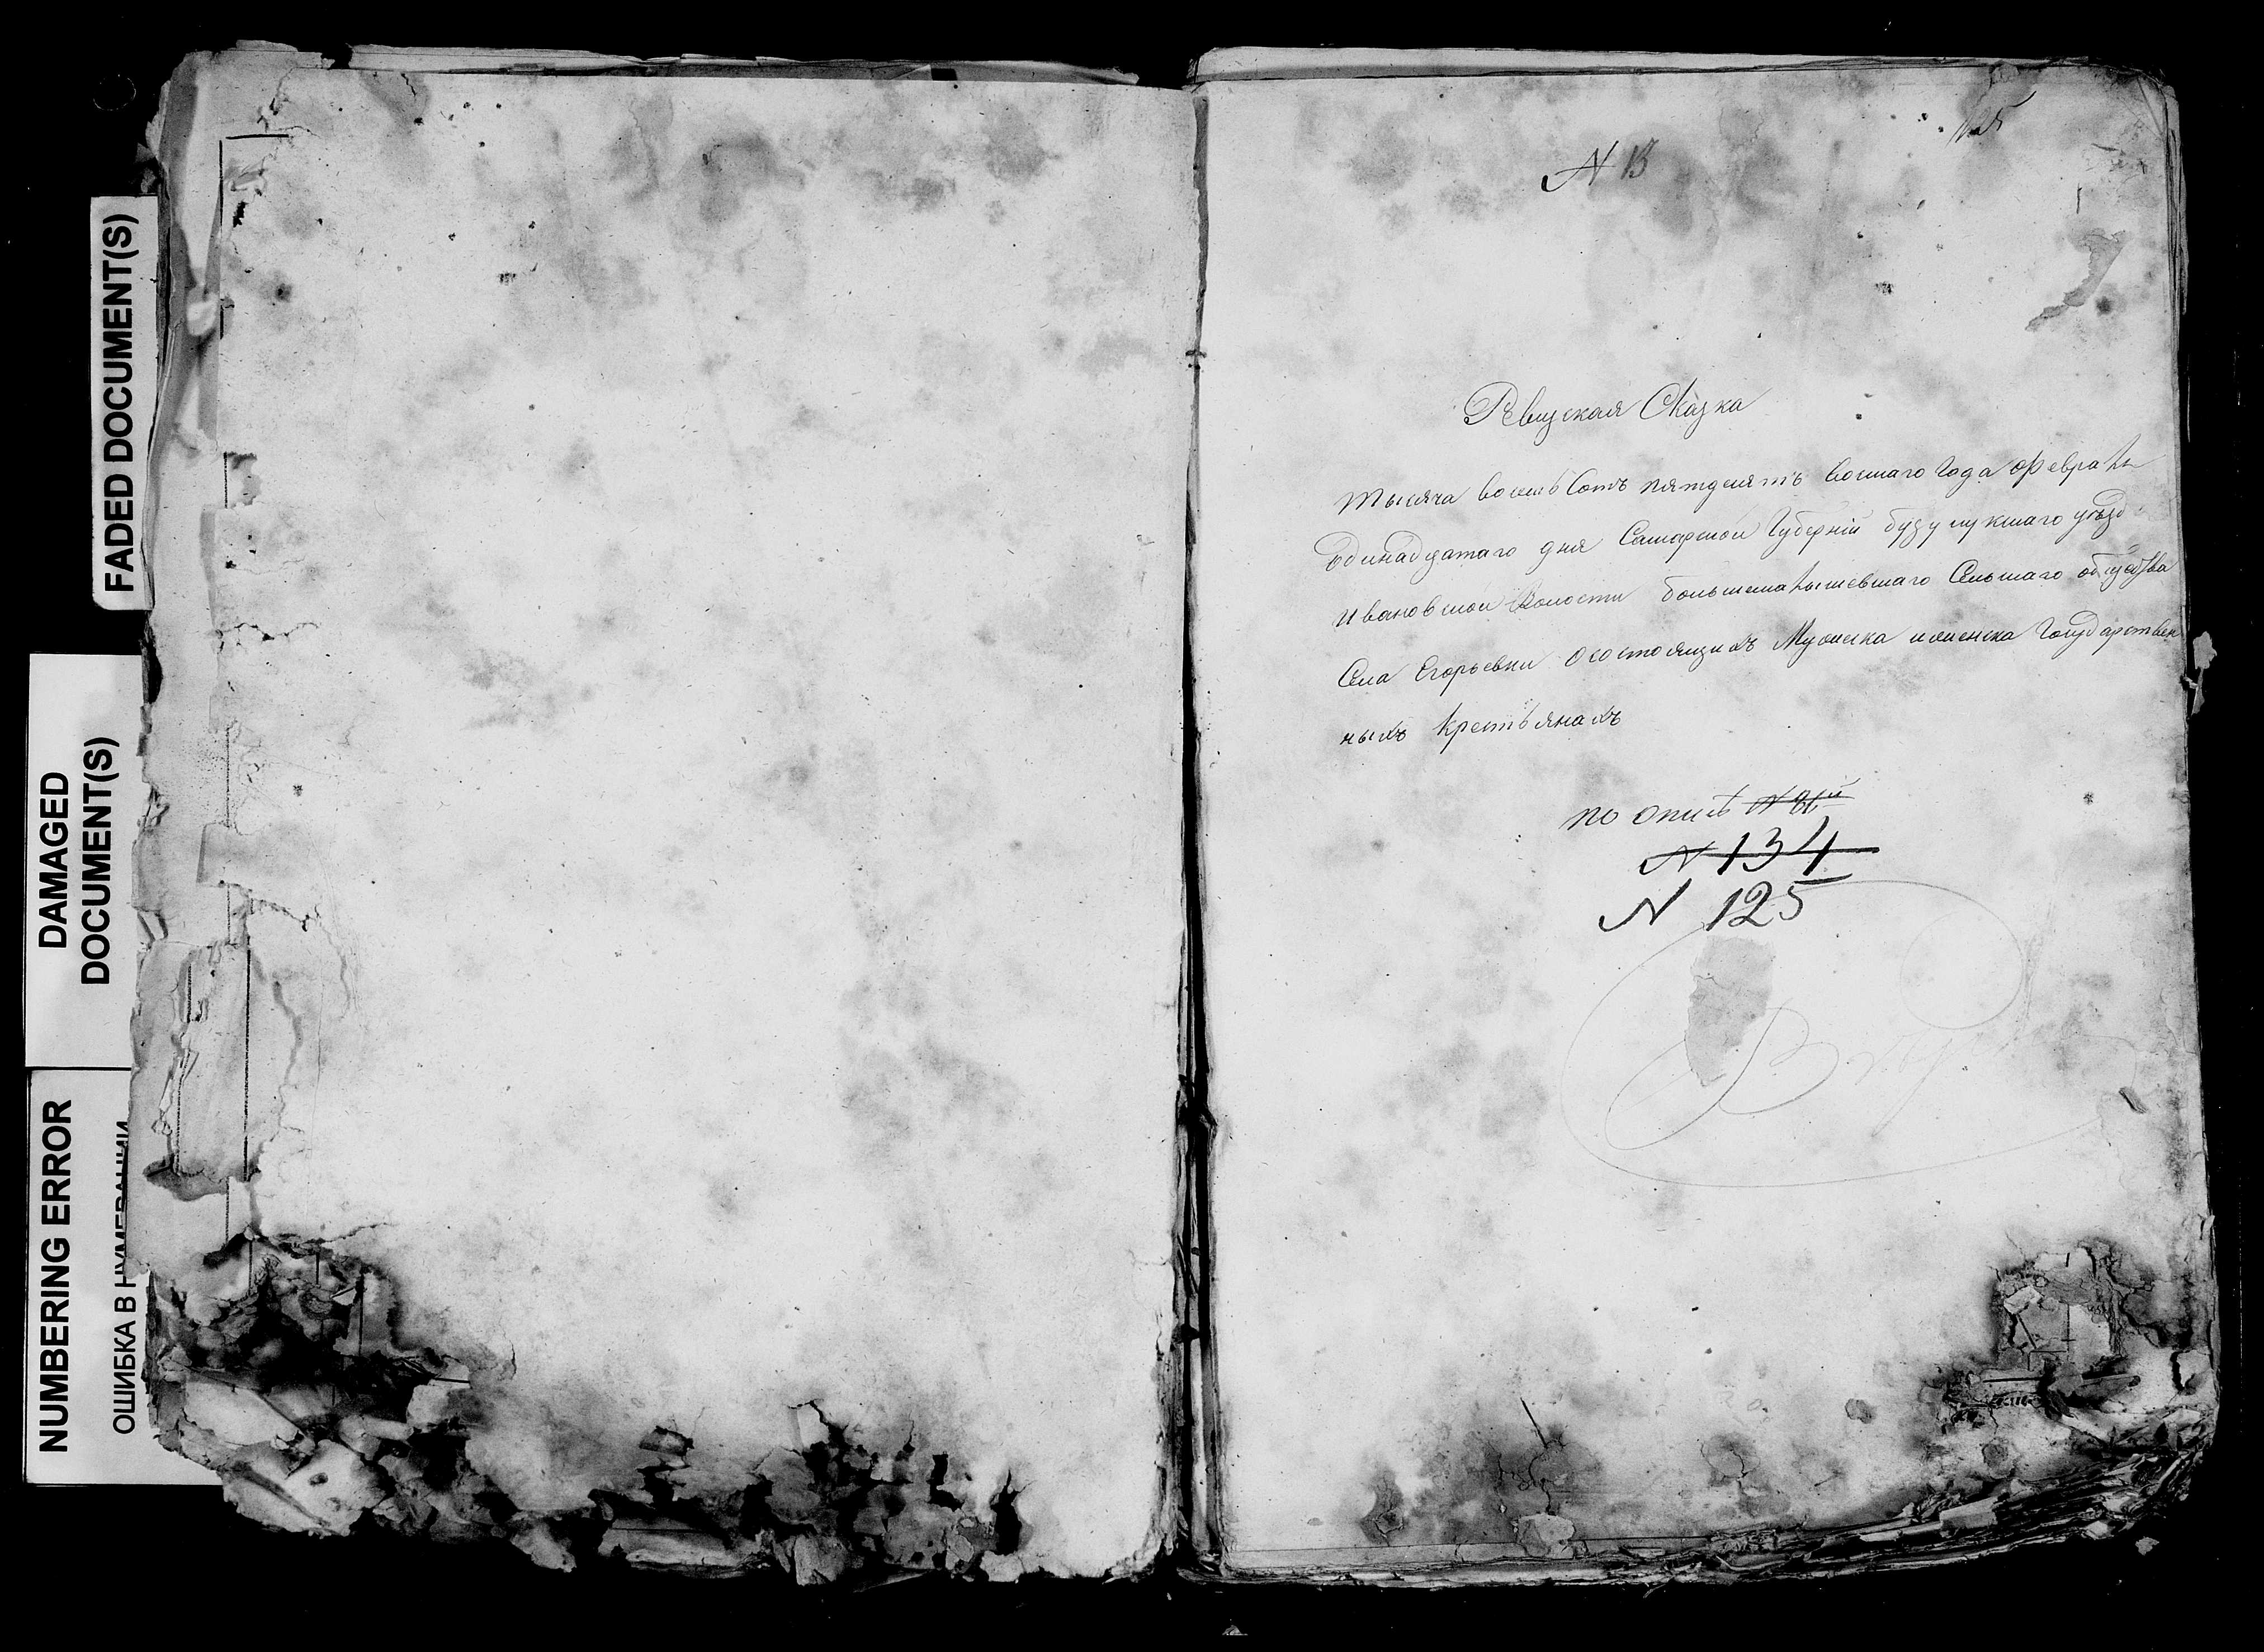 FADED DOCUMENT(S)
DAMAGED
DOCUMENT(S)
NUMBERING ERROR
ОШИБКА В НУМЕРАЦИИ
N 13
125
Ревизская Сказка
Тысяча восемьСотъ пятдесятъ восмаго Года Февраля
Одинадцатаго дня Самарской Губерніи бузулукскаго уѣзда
Ивановской Волости большемалышевскаго Сельскаго общества
Села Егорьевки осостоящихъ Мужеска иженска Государствен
ныхъ Крестьянахъ
по описѣ
N 134
N 125